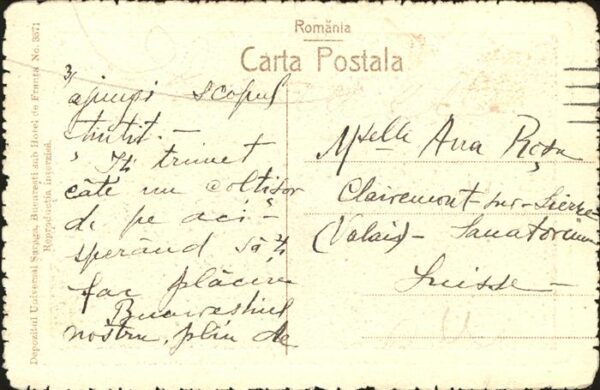 România
Carta Postala
Depozitul Universal Saraga, Bucuresti sub Hotel de Franta No. 3571
Reproductia interzisă.
3/
ajungi scopul
țintit. —
Iți trimet
câte un colțișor
de pe aci —
sperând să-ți
fac plăcere
Bucureștiul
nostru, plin de
Mselle Ana Roșu
Clairemont-sur-Sierre
(Valais) — Sanatorium
Suisse —